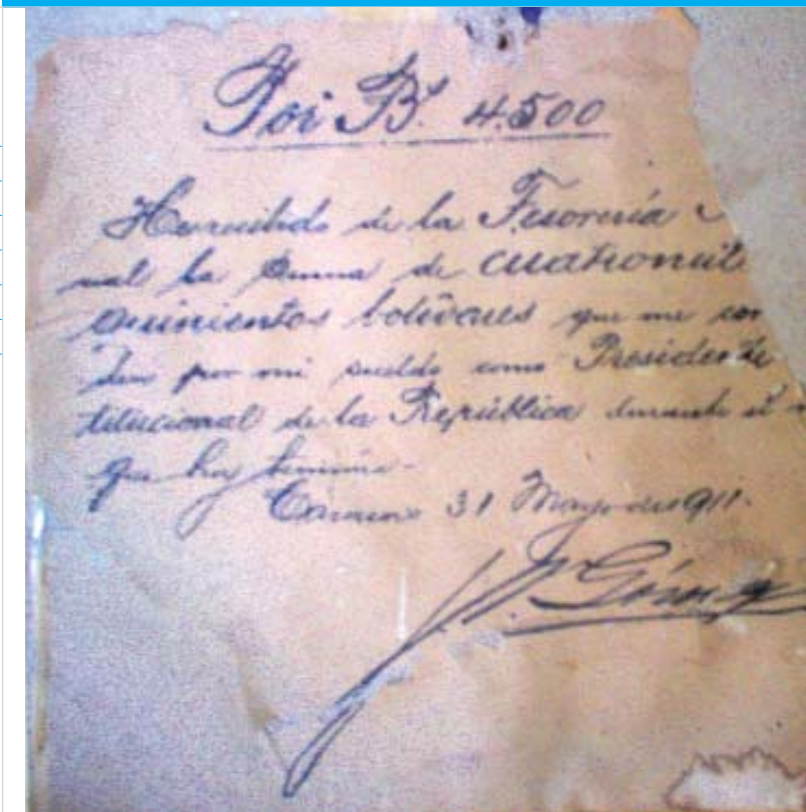 Por Bs. 4.500
He recibido de la Tesorería
nal la suma de cuatromil
quinientos bolívares que me con
den por mi sueldo como Presidente
titucional de la República durante el
que hoy termina.
Caracas 31 Mayo de 1911.
J. V. Gómez